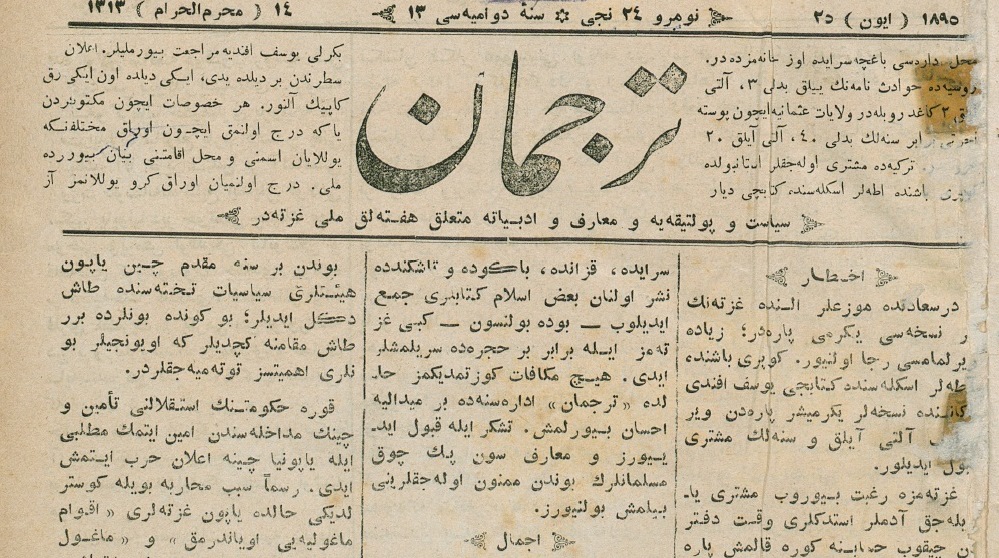 ١٨٩٥ ( ايون ) ٢٥
نومرو ٢٤ نجى سنهٔ دواميه‌سى ١٣
١٤ ( محرم الحرام ) ١٣١٣
باغچه سرايده اوز خانه‌مزده در.
روسيه‌ده حوادث نامه‌نك ييللق بدلى ٣، آلتى
٢ كاغد روبله‌در ولايات عثمانيه‌ايچون پوسته
برابر سنه‌لك بدلى ٤٠، آلتى آيلق ٢٠
تركيه‌ده مشترى اوله‌جقلر استانبولده
باشنده اطه‌لر اسكله‌سنده كتابچى ديار
ترجمان
بكرلى يوسف افنديه مراجعت بيورمليلر. اعلان
سطرندن بر ديلده يدى، ايكى ديلده اون ايكى رق
كاپيك آلنور. هر خصوصات ايچون مكتوبلردن
ياكه درج اولنمق ايچون اوراق مختلفه‌نكه
يوللايان اسمنى و محل اقامتنى بيان بيوررده
ملى. درج اولنميان اوراق كرو يوللانمز آز
سياست و پولتيقه‌يه و معارف و ادبياته متعلق هفته‌لق ملى غزته‌در
اخطار
درسعادتده موزعلر النده غزته‌نك
نسخه‌سى يكرمى پاره‌در؛ زياده
يرلمامسى رجا اولنيور. كوپرى باشنده
طه‌لر اسكله‌سنده كتابچى يوسف افندى
نسخه‌لر يكرميشر پاره‌دن وير
آلتى آيلق و سنه‌لك مشترى
بول ايديلور.
غزته‌مزه رغبت بيوروب مشترى يا-
يله‌جق آدملر استدكلرى وقت دفتر
چيقوب حسابنه كوره قالمش پاره
سرايده، قزانده، باكوده و تاشكندده
نشر اولنان بعض اسلام كتابلرى جمع
ايديلوب — بوده بولنسون — كبى غز
ته‌مز ايله برابر بر حجره‌ده سريلمشلر
ايدى. هيچ مكافات كوزتمديكمز حا-
لده «ترجمان» اداره‌سنه‌ده بر ميداليه
احسان بيورلمش. تشكر ايله قبول ايد-
يیورز و معارف سون پك چوق
مسلمانلرك بوندن ممنون اوله‌جقلرينى
بيلمش بولنيورز.
اجمال
بوندن بر سنه مقدم چين ياپون
هيئتلرى سياسيات تخته‌سنده طاش
دكل ايديلر؛ بو كونده بونلرده برر
طاش مقامنه كچديلر كه اويونجيلر بو
نلرى اهميتسز توته‌ميه‌جقلردر.
قوره حكومتنك استقلالنى تأمين و
چينك مداخله‌سندن امين ايتمك مطلبى
ايله ياپونيا چينه اعلان حرب ايتمش
ايدى. رسماً سبب محاربه بويله كوستر
لديكى حالده ياپون غزته‌لرى «اقوام
ماغوليه‌يى اوياندرمق» و «ماغول